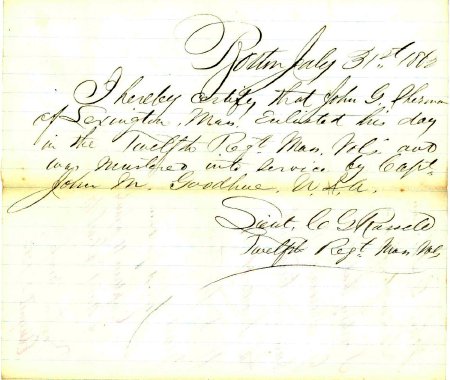 Boston July 31st 186
I hereby certify that John G. Sherman
of Lexington, Mass, Enlisted this day
in the Twelfth Regt. Mass. Vols and
was mustered into service by Capt.
John M. Goodhue. U.S.A.
Lieut. C G Russell
Twelfth Regt Mass Vols